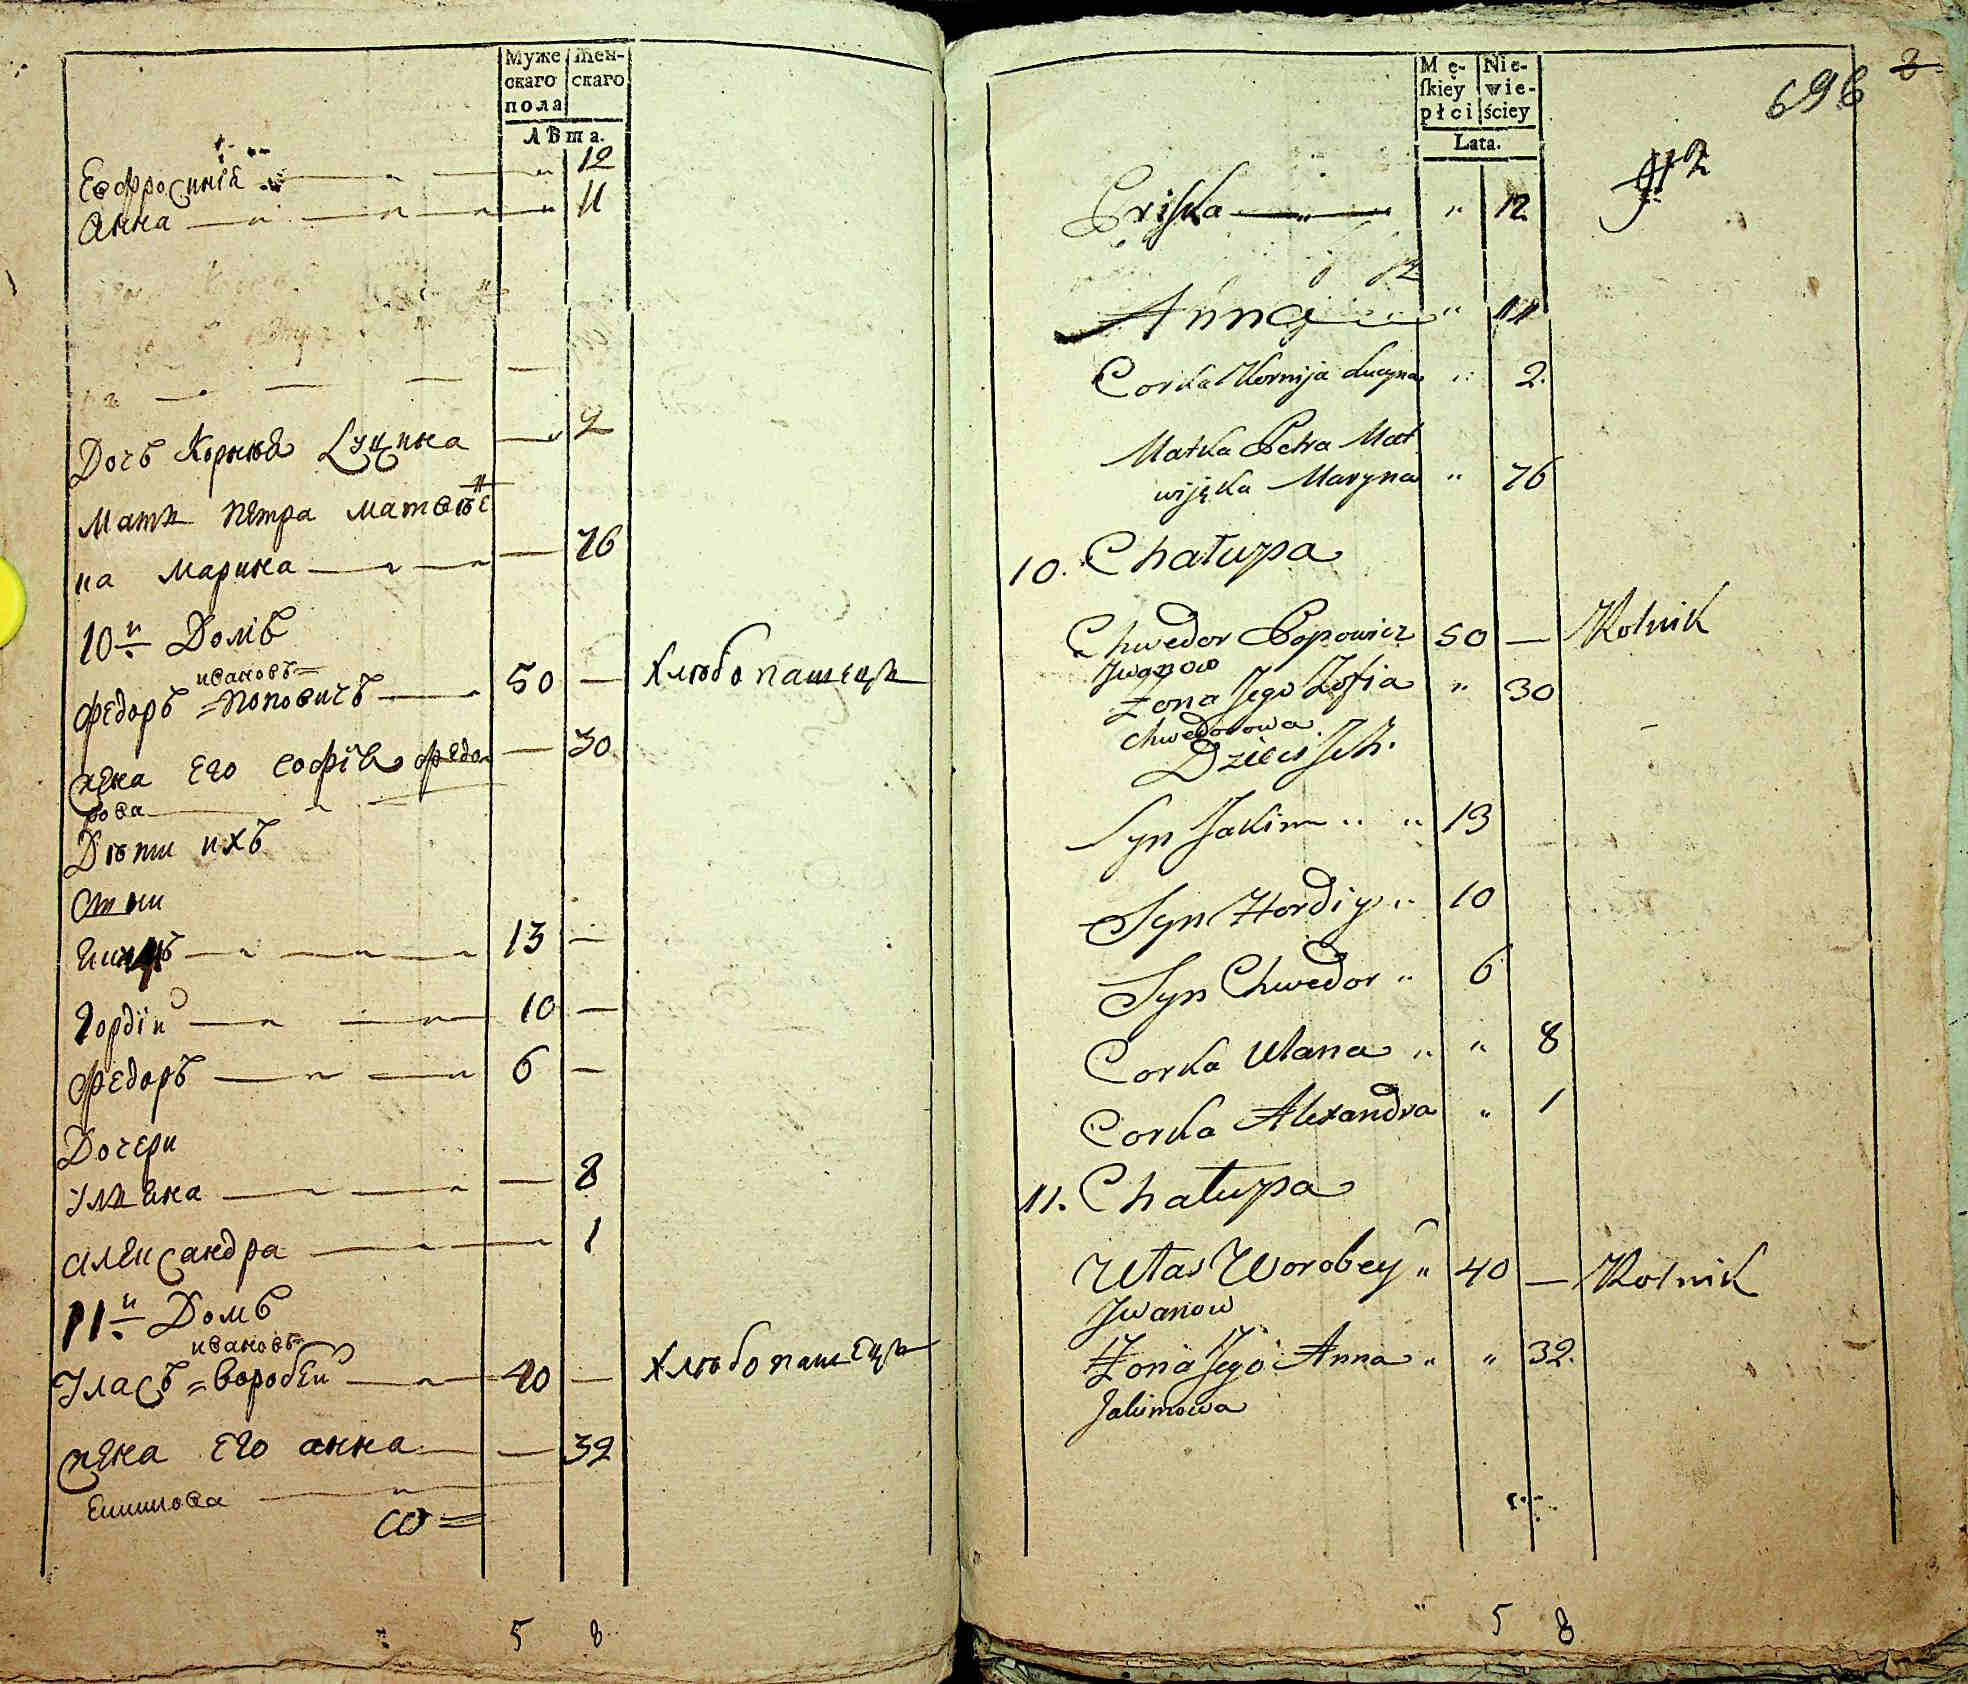 Муже
скаго
пола
Жен-
скаго
лѣта.
Еѳфросинія 12
Анна 11
Дочь Корнѣя Луцина 2
Мати Петра Матвѣе
на Марина 76
10й Домъ
ивановъ
Федоръ Поповичъ 50 — Хлѣбопашецъ
жена Его Софія Федо — 30
рова
Дѣти ихъ
Якимъ 13 —
Гордій 10 —
Федоръ 6 —
Дочери
Уляна — 8
Александра 1
11й Домъ
ивановъ
Уласъ Воробей 40 — Хлѣбопашецъ
жена Его Анна — 32
Якимова
5 8
Mę-
ſkiey
płci
Nie-
wie-
ściey
Lata.
696
12
Anna " 11
Corka Kornija Lucyna " 2.
Matka Petra Mat
wijęka Maryna " 76
10. Chałupa
Chwedor Popowicz 50 — Rolnik
Jwanow
Żona Jego Zofia " 30
Chwedorowa
Dzieci Jch.
Syn Jakim " " 13
Syn Hordiy " 10
Syn Chwedor " 6
Corka Ulana " " 8
Corka Alexandra " 1
11. Chałupa
Ułas Worobey " 40 — Rolnik
Jwanow
Żona Jego Anna " " 32.
Jakimowa
5 8